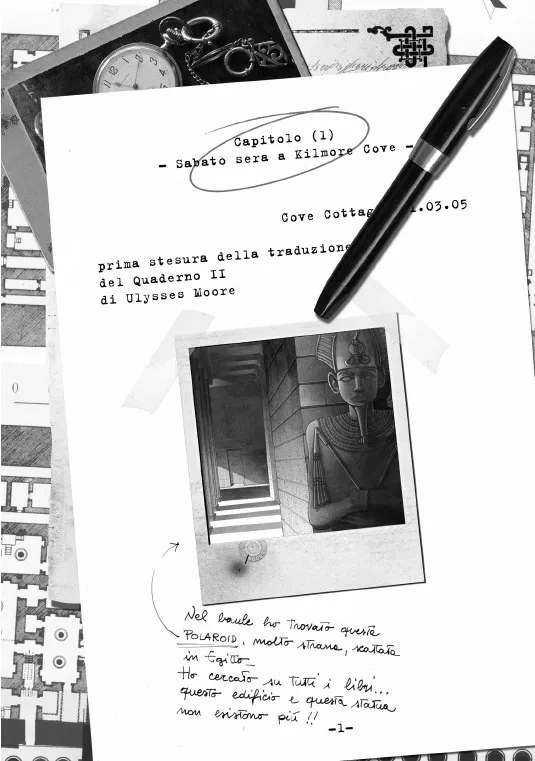 Capitolo (1)
- Sabato sera a Kilmore Cove -
Cove Cottag 1.03.05
prima stesura della traduzione
del Quaderno II
di Ulysses Moore
Nel baule ho trovato questa
POLAROID, molto strana, scattata
in Egitto_
Ho cercato su tutti i libri...
questo edificio e questa statua
non esistono più!!
-1-
0